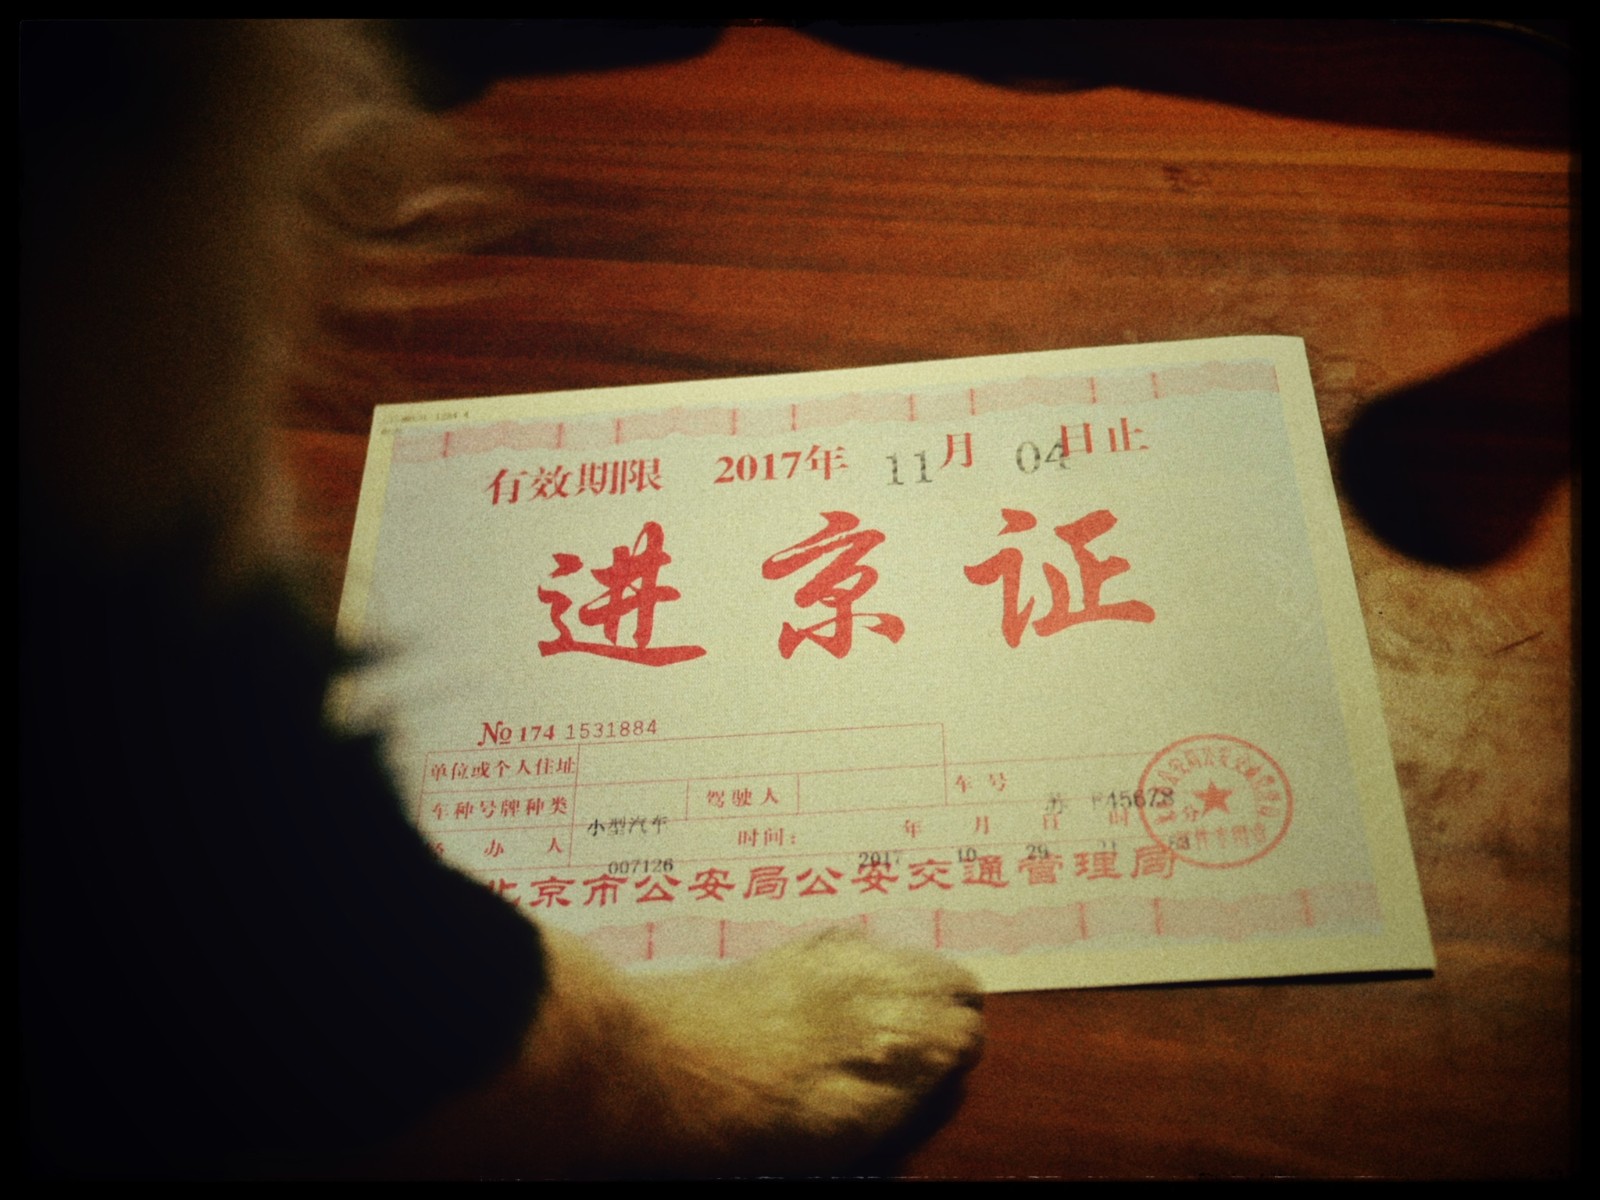 有效期限 2017年 11月 04日止
进京证
№ 174 1531884
单位或个人住址
车种号牌种类 小型汽车 驾驶人 车号 苏 F45678
办 人 007126 时间: 2017年 10月 29日 21时 分
北京市公安局公安交通管理局